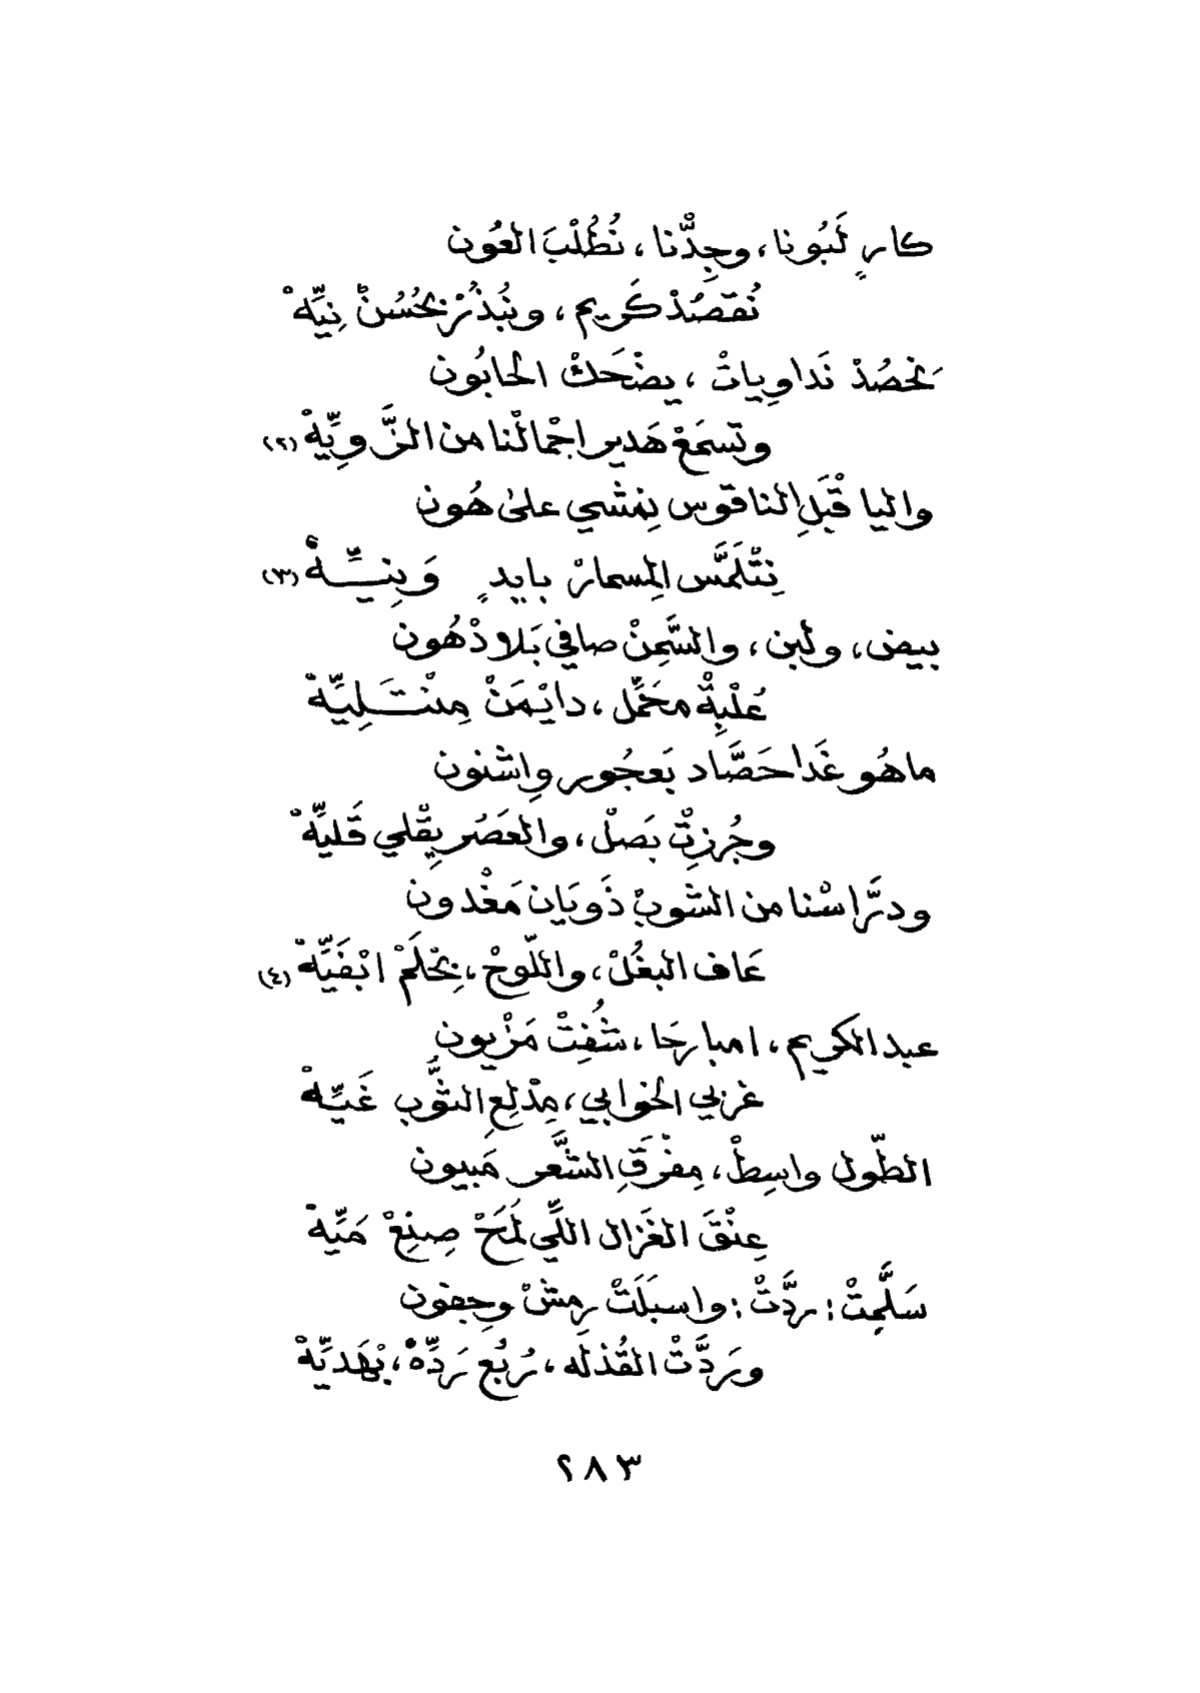 كارٍ لَبُونا، وجِدّْنا، نُطُلْبَ العُون
نُقصُدْ كَريم، ونُبذُرْ بحُسُنْ نِيِّهْ
نَحصُدْ نَداوِياتْ، يضْحَكْ الحابُون
وتسمَعْ هَدير اجْمالْنا من الزَّوِيِّهْ (٢)
واليا قْبَلِ الناقوس نِمشي على هُون
نِتْلَمَّس المِسمارْ بايدٍ وَنِيِّهْ (٣)
بيض، ولبن، والسَّمِنْ صافي بَلا دْهُون
عُلْبِةْ محَمَّل، دايْمَنْ مِنْتَلِيِّهْ
ماهُو غَدا حَصَّاد بَعجُور واِشنون
وجُرزِتْ بَصَلْ، والعَصَر يِقْلي قَليِّهْ
ودرَّاسْنا من الشوبْ ذَوبَان مَغْدون
عَاف البغُلْ، واللّوحْ، بِحْلَمْ ابْفَيِّهْ (٤)
عبد الكريم، امبارحَا، شُفِتْ مَزْيون
غربي الخوابي، مِدْلعِ الثُّوب غَيِّهْ
الطّول واسِطْ، مِفْرَقِ الشَّعَر مَبيون
عِنْقَ الغَزال اللّي لمَحْ صِنِعْ مَيِّهْ
سَلَّمِتْ: ردَّتْ: واسبَلَتْ رمشْ وجِفون
ورَدَّتْ القُذلَه، رُبُع رَدِّهْ، بْهَديِّهْ
٢٨٣